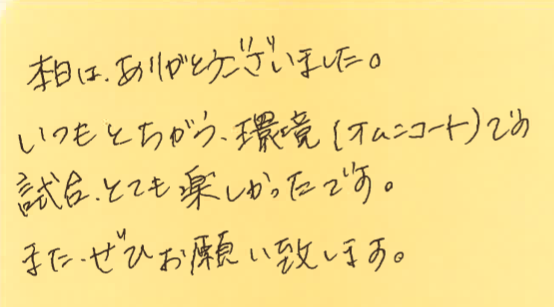 本日は、ありがとうございました。
いつもとちがう、環境(オムニコート)での
試合、とても楽しかったです。
また、ぜひお願い致します。